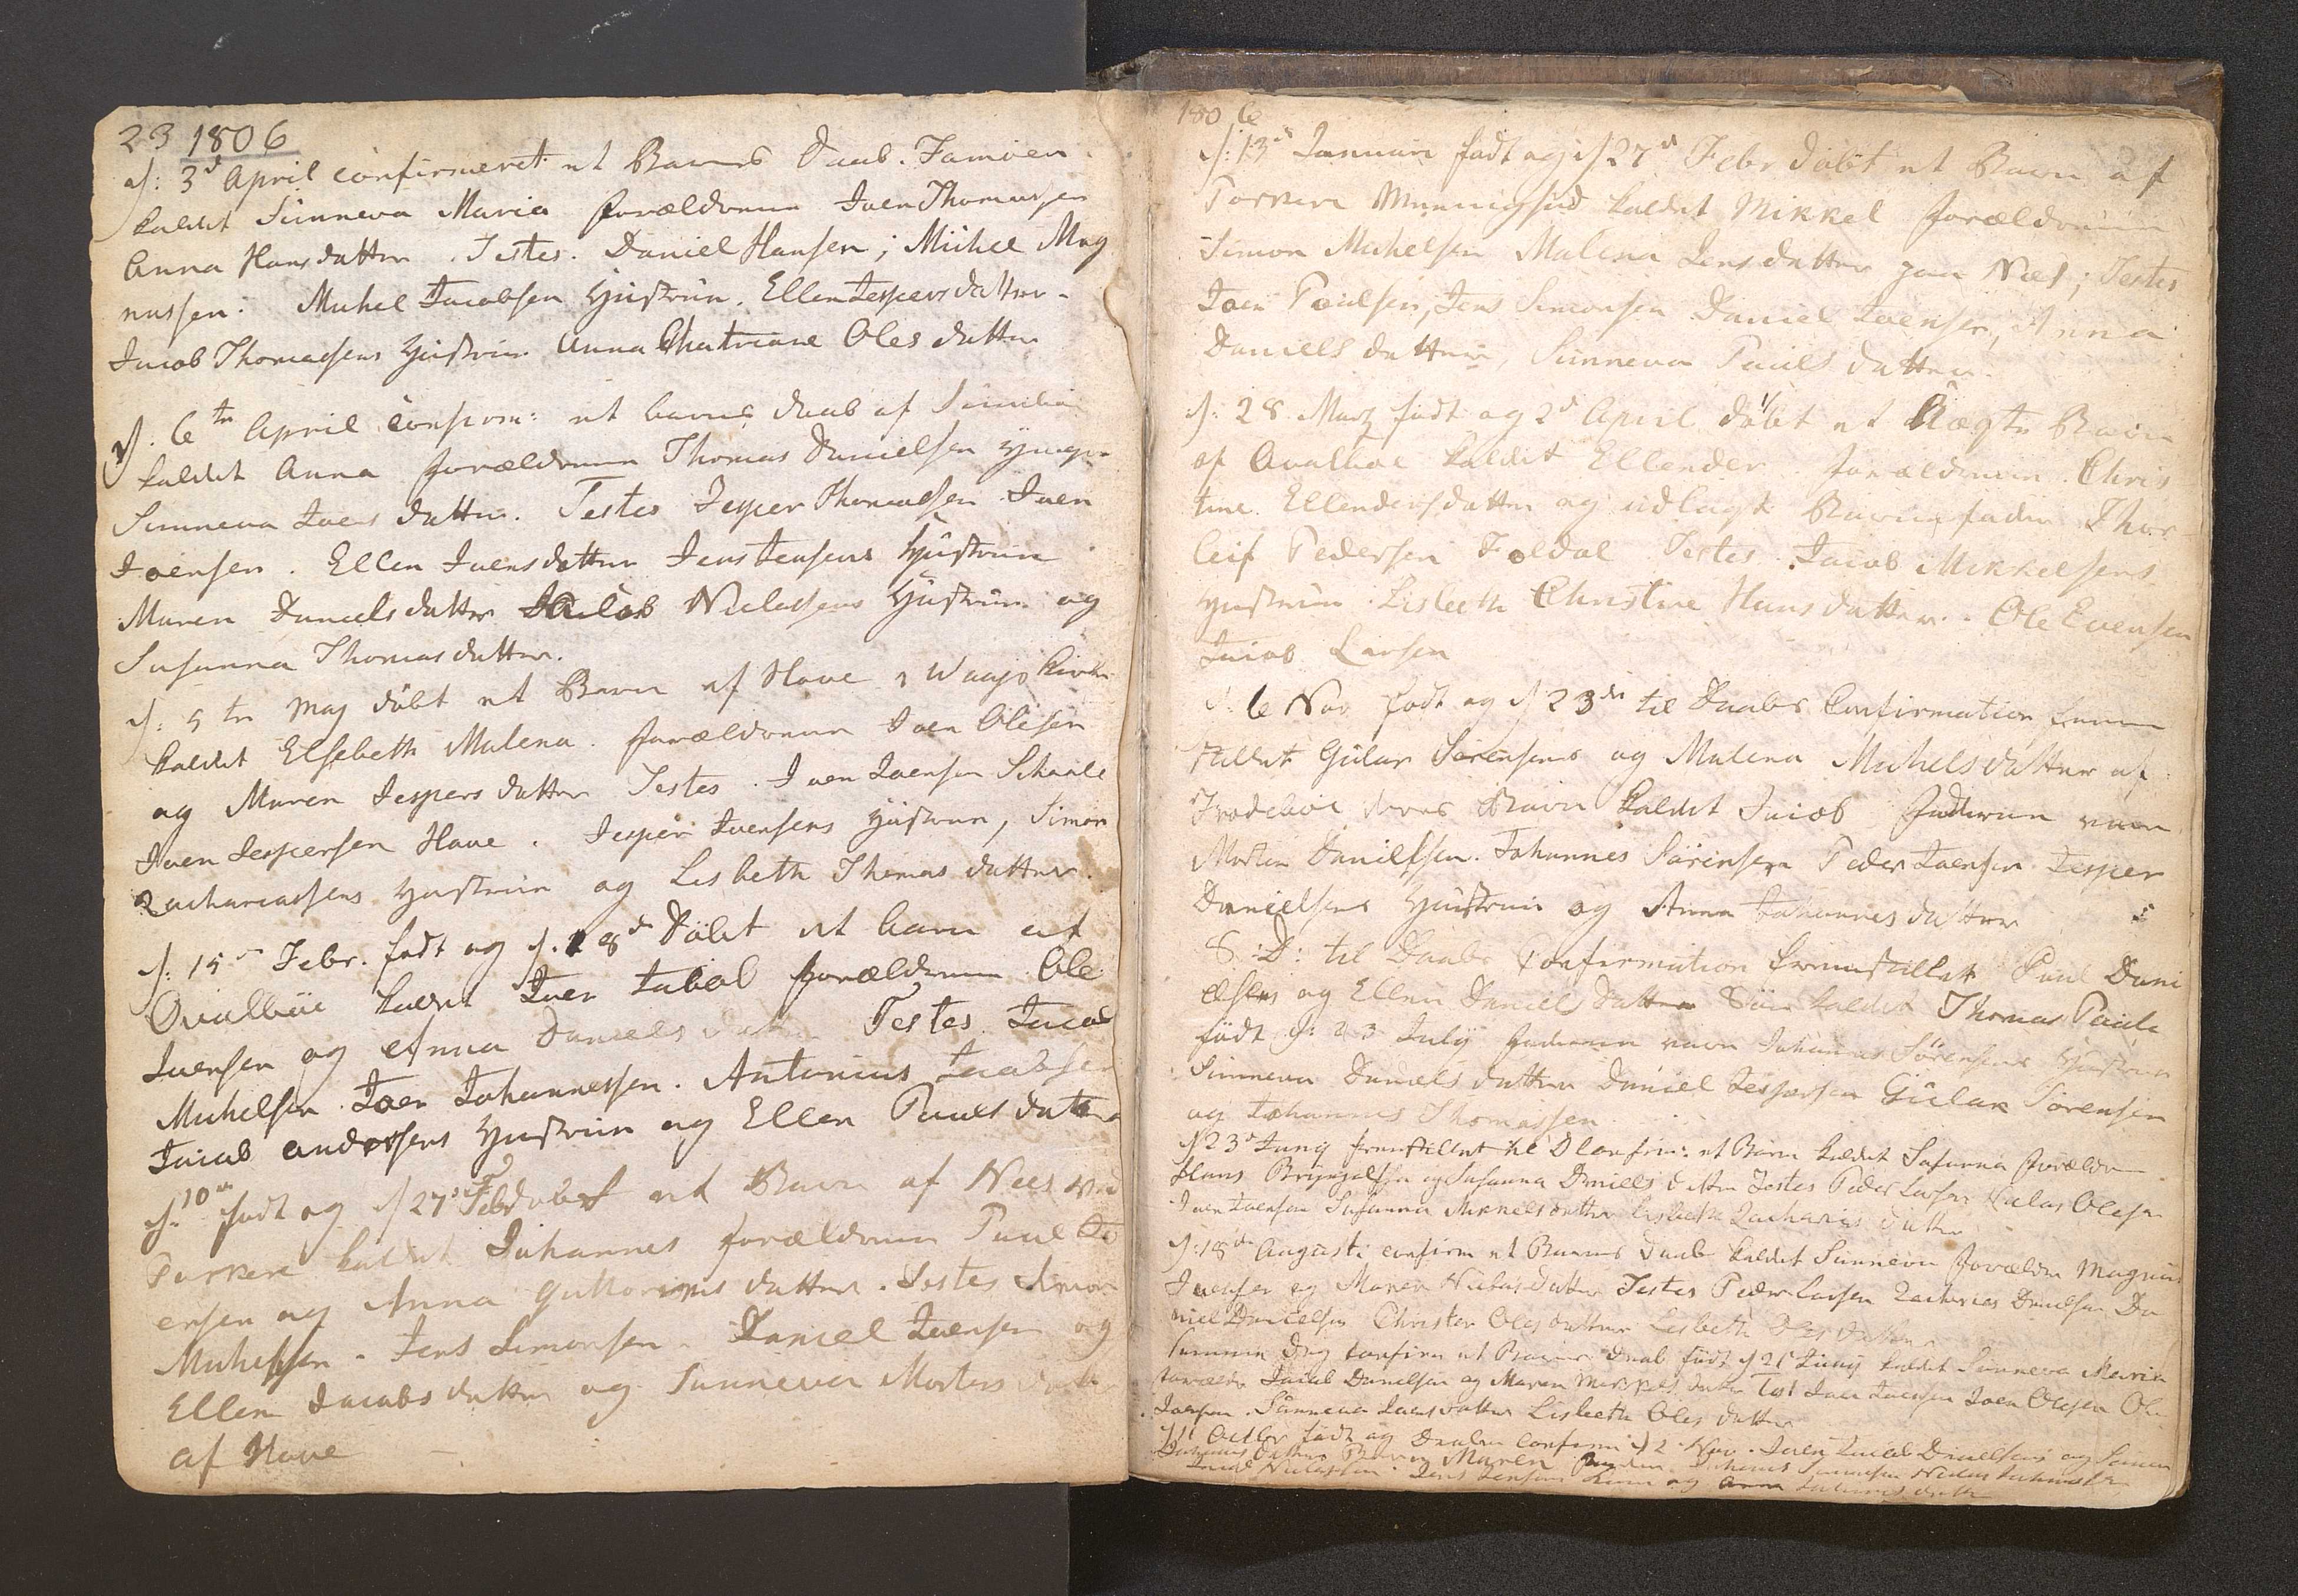 23 1806
d: 3d April confirmeret et Barns Daab. Famien
kaldet Sunneva Maria forældrene Joen Thomassen
Anna Hansdatter. Testes. Daniel Hansen; Michel Mag
nussen: Michel Jacobsen Hustrue. Ellen Jespersdatter.
Jacob Thomasens Hustrue Anna Chatrine Olesdatter
d. 6te April confirm: et barns daab af Sumbøe
kaldet Anna forældrene Thomas Danielsen
Sunneva Joensdatter. Testes Jesper Thomassen Joen
Joensen. Ellen Joensdatter Jens Jensens Hustrue
Maren Danielsdatter Jacob Niclassens Hustrue og
Susanna Thomasdatter.
d: 5te May döbt et Barn af Hove i Waags
kaldet Elsebeth Malena. forældrene Joen Olesen
og Maren Jespersdatter Testes. Joen Joensen
Joen Jespersen Hove. Jesper Joensens Hustrue, Simon
Zachariasens Hustrue og Lisbeth Thomasdatter.
d: 15 Febr. födt og d. 18d Döbt et barn af
Qvalböe kaldet Joen forældrene Ole
Joensen og Anna Danielsdatter Testes. Jacob
Michelsen. Joen Johannessen. Antonius Jacobsen
Jacob Andersens Hustrue og Ellen Paulsdatter
d. 10 födt og d 27 Febr döbt et Barn af Nees ved
Porkere kaldet Johannes forældrene Paul
ersen og Anna Guttormsdatter. Testes Simon
Michelsen. Jens Simonsen. Daniel Joensen og
Ellen Jacobsdatter og Sunneva Mortensdatter
af Hove
1806
d: 13d Januari födt og d 27d Febr döbt et Barn af
Porkere kaldet Mikkel forældrene
Simon Michelsen Malena Jensdatter paa Nees; Testes
Joen Poulsen, Jens Simonsen Daniel Joensen, Anna
Danielsdatter, Sunneva Paulsdatter.
d: 28. Martz födt og 2d April döbt et Uægte Barn
af Qvalböe kaldet Ellender. forældrene. Chris
tine. Ellendersdatter og udlagt Barnefader Thor
leif Pedersen Testes. Jacob Mikkelsens
Hustrue. Lisbeth Christine Hansdatter. Ole Evensen
Jacob Larsen
d. 6 Nov födt og d 23de til Daabs Confirmation frem
stillet Gulak Sörensens og Malena Michelsdatter af
Frodeböe deres Barn kaldet Jacob Fadderne vare
Morten Danielsen. Johannes Sörensen Peder Joensen Jesper
Danielsens Hustrue og Anna Johannesdatter
S: D: til Daabs Confirmation fremstillet Paul Dani
elsens og Ellen Danielsdatter Sön kaldet Thomas Paul
födt d: 23 July Fadderne vare Johannes Sörensens Hustrue
Sunneva Danielsdatter Daniel Jespersen Gulak Sörensen
og Johannes Thomassen
d 23d Juny fremstillet til D Confirm: et Barn kaldet Susanna forældre
Hans og Susanna Danielsdatter Testes Peder Larsen Niclas Olesen
Joen Joensen Susanna Mikkelsdatter Lisbeth Zachariasdatter
d: 18de Augusti confirm et Barns Daab kaldet Sunneva forældre Magnus
Joensen og Maren Niclasdatter Testes Peder Larsen Zacharias Danielsen Da
niel Danielsen Christer Olesdatter Lisbeth Olesdatter
Samme Dag confirm et Barns Daab födt d 21 Juny kaldet Sunneva Maria
forældre Jacob Danielsen og Maren Mikkelsdatter Test Joen Joensen Joen Olesen Ole
Joensen. Sunneva Joensdatter Lisbeth Olesdatter
födt og Daaben Confirm d 2 Nov. Joen Jacob Danielsens og
datter Barn Maren
Jacob Niclassen Jens Jensens Kone og Anna